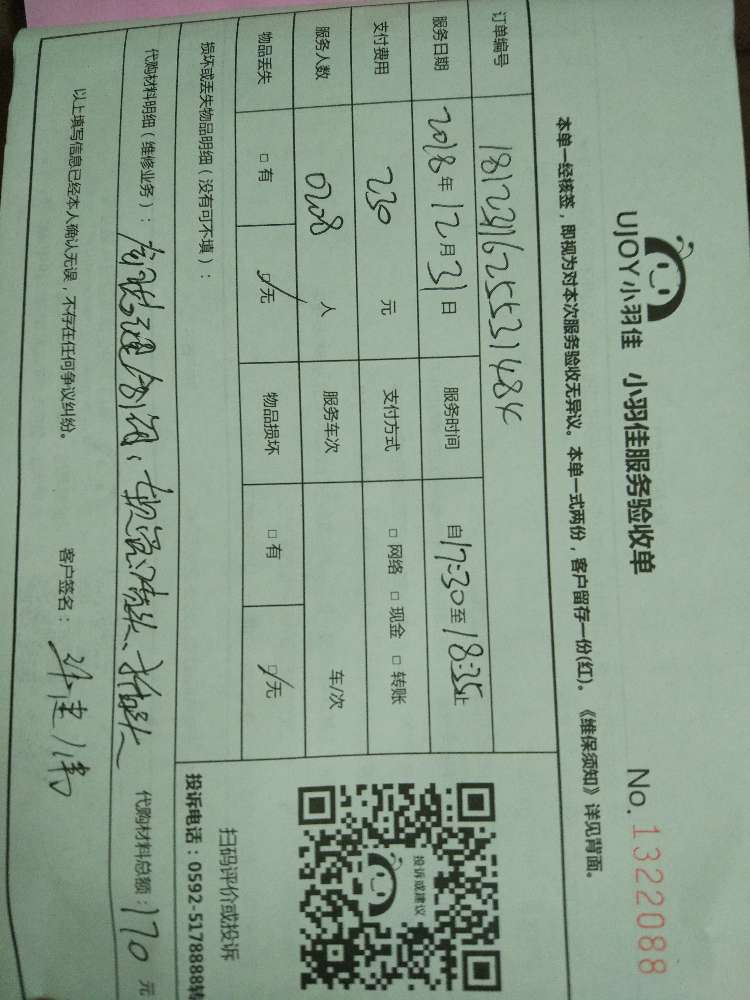 UJOY小羽佳 小羽佳服务验收单 No.1322088
本单一经核签，即视为对本次服务验收无异议。本单一式两份，客户留存一份(红)。《维保须知》详见背面。
订单编号 18123116255531484
服务日期 2018年12月31日 服务时间 自17:30至18:35止
支付费用 230元 支付方式 □网络 □现金 □转账
服务人数 0208人 服务车次 车/次
物品丢失 □有 ☑无 物品损坏 □有 ☑无
损坏或丢失物品明细（没有可不填）：
投诉或建议
扫码评价或投诉
投诉电话：0592-5178888转
代购材料明细（维修业务）： 代购材料总额：170元
以上填写信息已经本人确认无误，不存在任何争议纠纷。 客户签名：